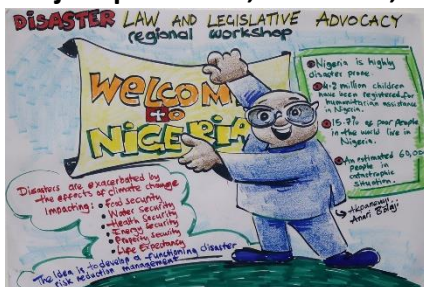 DISASTER LAW AND LEGISLATIVE ADVOCACY
regional workshop
WELCOM
TO
NIGERIA
Nigeria is highly
disaster prone.
4.2 million children
have been registered for
humanitarian assistance
in Nigeria.
15.7% of poor people
in the world live in
Nigeria.
An estimated 60,00
people in
catastrophic
situation.
Anari Balaji
Disasters are exacerbated by
the effects of climate change
Impacting:
Food security
Water security
Health Security
Energy Security
Property security
Life Expectancy
The Idea is to develop a functioning disaster
risk reduction management